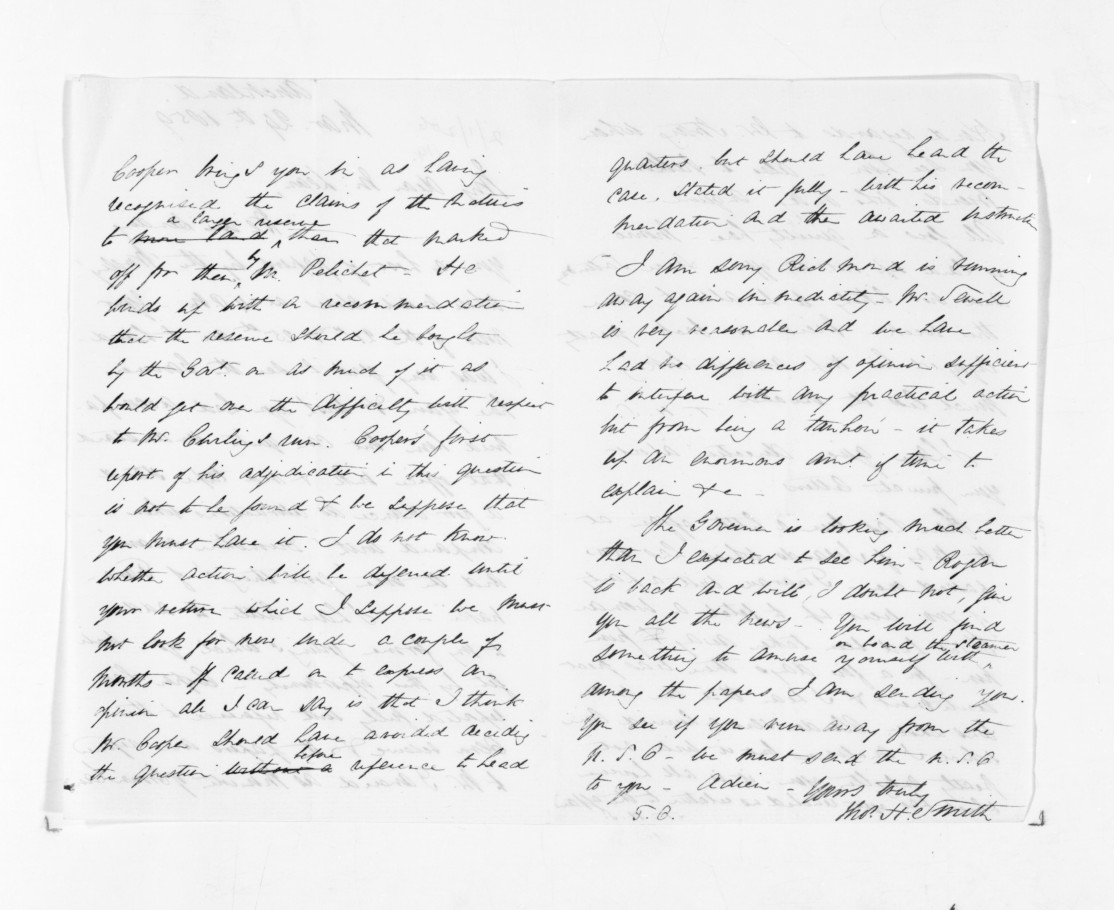 Cooper brings you in as having
recognised the claims of the Natives
a larger reserve
to more land, than that marked
off for them by Mr. Pelichet - He
winds up with a recommendation
that the reserve should be bought
by the Govt. or as much of it as
would get over the difficulty with respect
to Mr. Curling's run. Cooper's first
report of his adjudication in this question
is not to be found & we suppose that
you must have it. I do not know
whether action will be deferred until
your return which I suppose we must
not look for now under a couple of
months - If called on to express an
opinion all I can say is that I think
Mr. Cooper should have avoided deciding
before
the question without a reference to head
quarters, but should have heard the
case, stated it fully - with his recom-
mendation and then awaited instruction
- I am sorry Richmond is running
away again immediately - Mr Sewell
is very reasonable and we have
had no differences of opinion sufficient
to interfere with any practical action
but from being a tauhou - it takes
up an enormous amt. of time to
explain &c -
The Governor is looking much better
than I expected to see him - Rogan
is back and will, I doubt not, give
you all the news - You will find
on board the steamer
something to amuse yourself with,
among the papers I am sending you.
You see if you run away from the
N. S. O - we must send the N. S. O
to you - Adieu - Yours truly
Thos. H. Smith
T. O.
Auckland